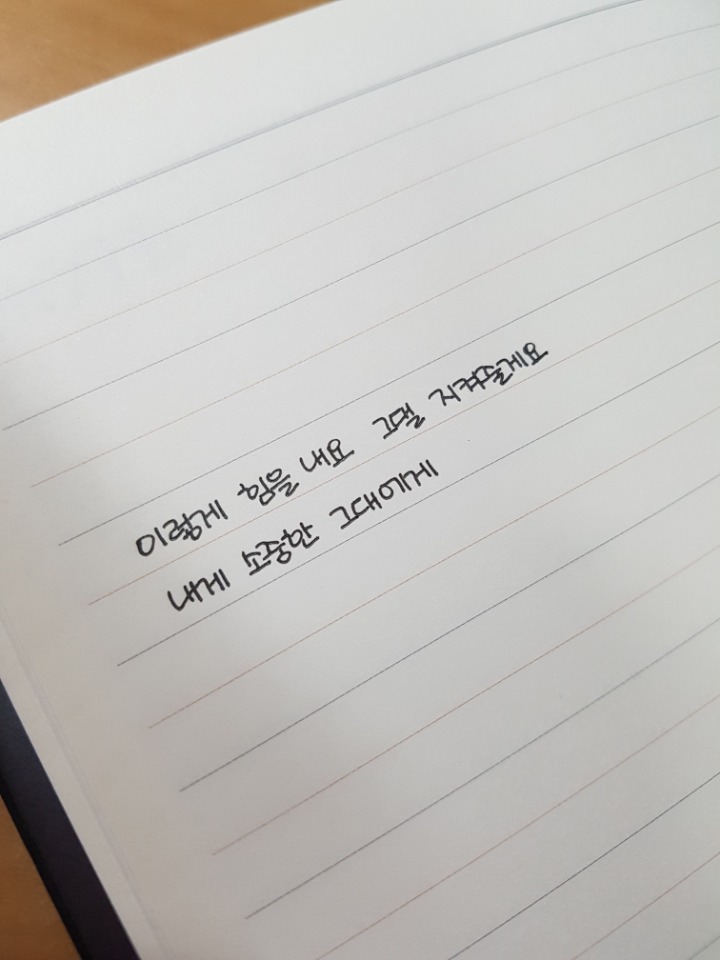 이렇게 힘을 내요 그댈 지켜줄게요
내게 소중한 그대에게